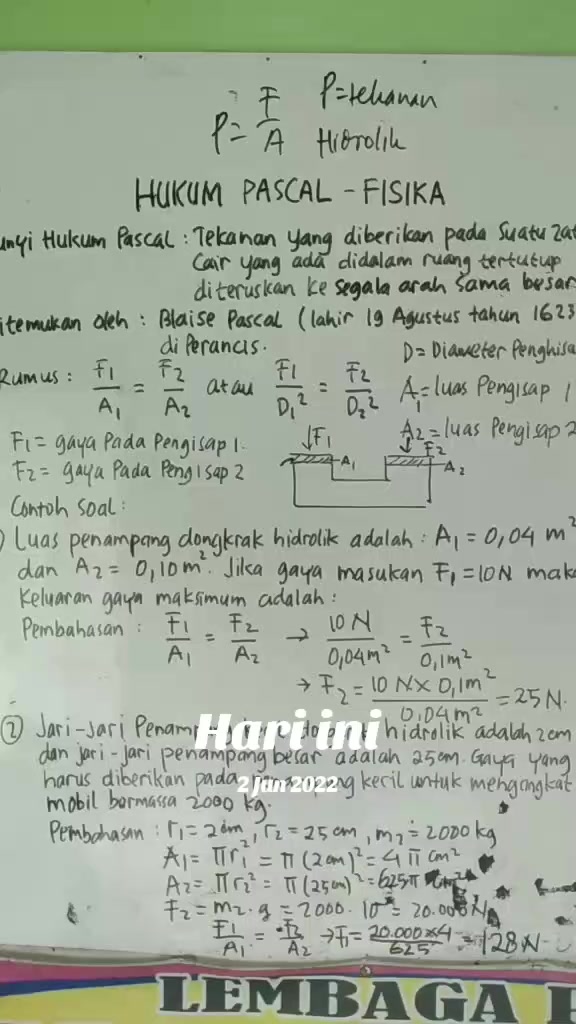 P = F/A P = tekanan
Hidrolik
HUKUM PASCAL - FISIKA
unyi Hukum Pascal : Tekanan yang diberikan pada Suatu Zat
Cair yang ada didalam ruang tertutup
diteruskan ke segala arah sama besar
itemukan oleh : Blaise Pascal (lahir 19 Agustus tahun 1623
di Perancis.
D = Diameter Penghisa
Rumus : F1/A1 = F2/A2 atau F1/D1² = F2/D2² A1 = luas Pengisap 1
A2 = luas Pengisap 2
F1 = gaya Pada Pengisap 1.
F2 = gaya Pada Pengisap 2
F1 A1 F2 A2
Contoh Soal :
) Luas penampang dongkrak hidrolik adalah : A1 = 0,04 m²
dan A2 = 0,10 m². Jika gaya masukan F1 = 10 N mak
Keluaran gaya maksimum adalah :
Pembahasan : F1/A1 = F2/A2 → 10 N/0,04 m² = F2/0,1 m²
→ F2 = 10 N x 0,1 m²/0,04 m² = 25 N.
Hari ini
② Jari-Jari Penampang hidrolik adalah 2 cm
dan jari-jari penampang besar adalah 25 cm. Gaya yang
2 Jan 2022
harus diberikan pada penampang kecil untuk mengangkat
mobil bermassa 2000 kg.
Pembahasan : r1 = 2 cm, r2 = 25 cm, m2 = 2000 kg
A1 = πr1² = π(2 cm)² = 4π cm²
A2 = πr2² = π(25 cm)² = 625π cm²
F2 = m2 . g = 2000 . 10 = 20.000 N
F1/A1 = F2/A2 → F1 = 20.000 x 4/625 = 128 N
LEMBAGA